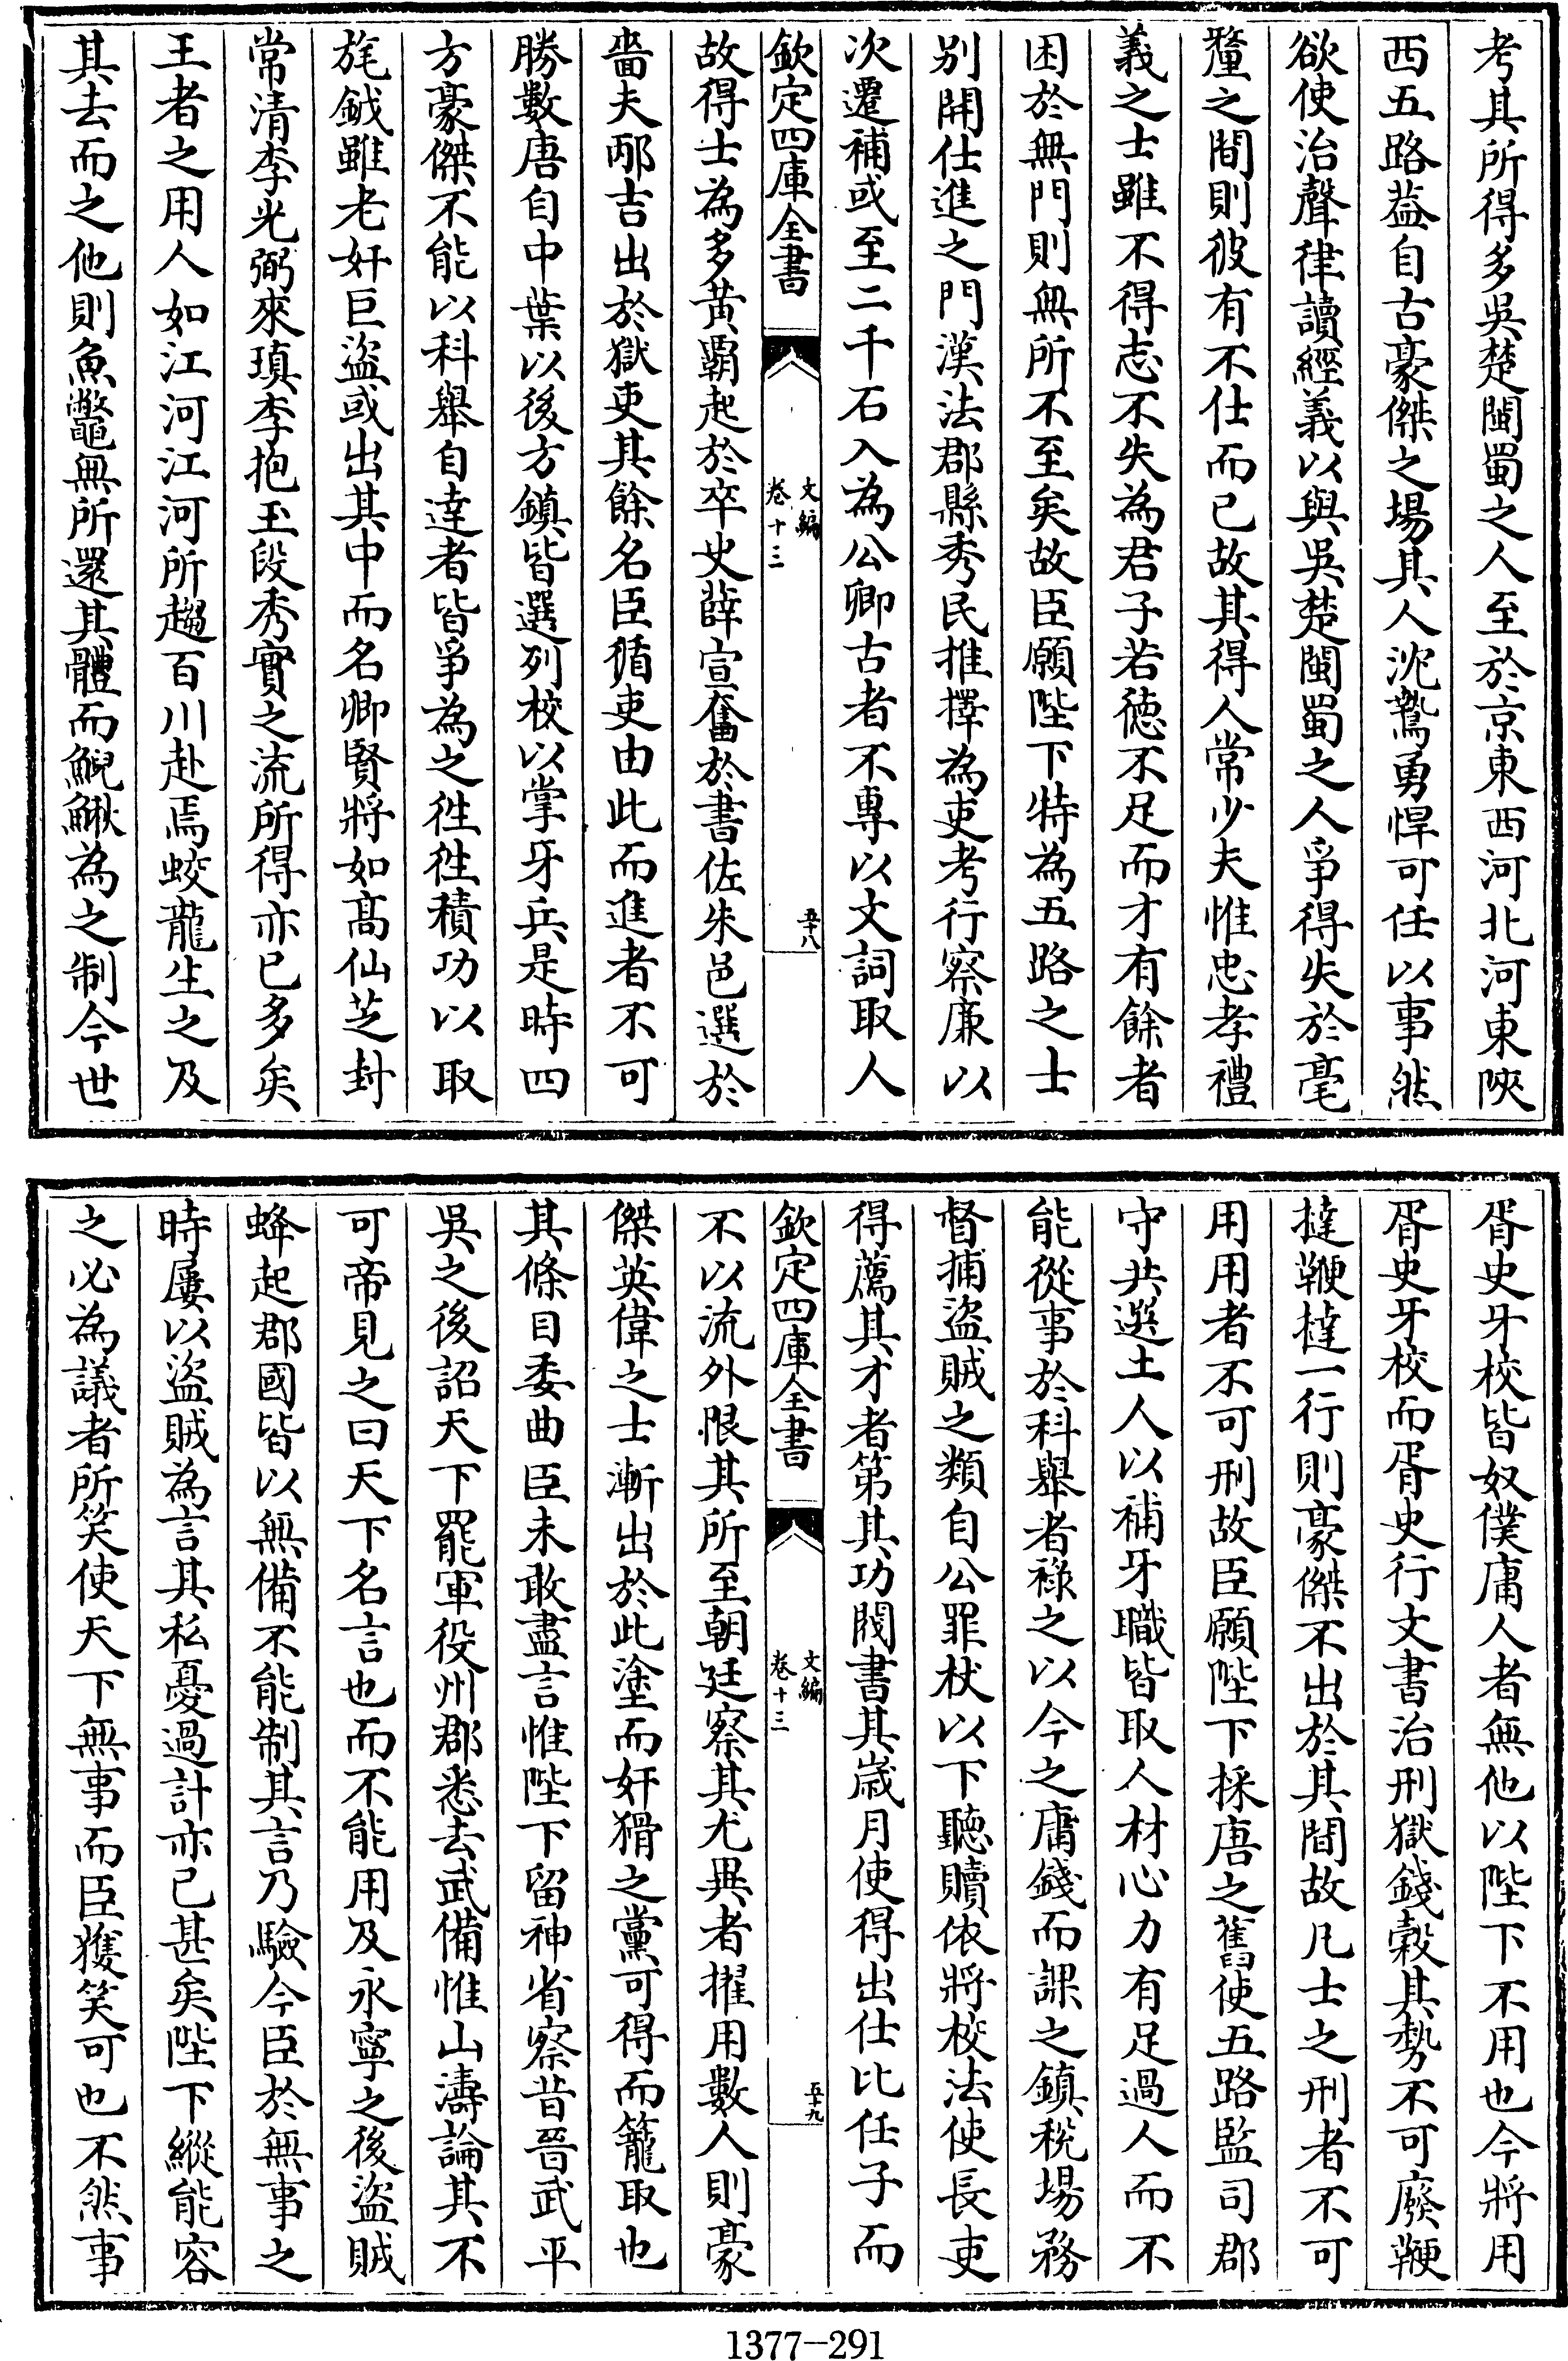 考其所得多吳楚閩蜀之人至於京東西河北河東陜
西五路葢自古豪傑之場其人沈鷙勇悍可任以事然
欲使治聲律讀經義以與吳楚閩蜀之人爭得失於毫
釐之間則彼有不仕而已故其得人常少夫惟忠孝禮
義之士雖不得志不失為君子若徳不足而才有餘者
困於無門則無所不至矣故臣願陛下特為五路之士
别開仕進之門漢法郡縣秀民推擇為吏考行察廉以
次遷補或至二千石入為公卿古者不專以文詞取人
欽定四庫全書
文編
卷十三
五十八
故得士為多黄霸起於卒史薛宣奮於書佐朱邑選於
嗇夫邴吉出於獄吏其餘名臣循吏由此而進者不可
勝數唐自中葉以後方鎮皆選列校以掌牙兵是時四
方豪傑不能以科舉自達者皆爭為之徃徃積功以取
旄鉞雖老奸巨盜或出其中而名卿賢將如髙仙芝封
常清李光弼來瑱李抱玉段秀實之流所得亦已多矣
王者之用人如江河江河所趨百川赴焉蛟龍生之及
其去而之他則魚鼈無所還其體而鯢鰍為之制今世
胥史牙校皆奴僕庸人者無他以陛下不用也今將用
胥史牙校而胥史行文書治刑獄錢穀其勢不可廢鞭
撻鞭撻一行則豪傑不出於其間故凡士之刑者不可
用用者不可刑故臣願陛下採唐之舊使五路監司郡
守共選土人以補牙職皆取人材心力有足過人而不
能從事於科舉者禄之以今之庸錢而課之鎮税場務
督捕盜賊之類自公罪杖以下聽贖依將校法使長吏
得薦其才者第其功閥書其歳月使得出仕比任子而
欽定四庫全書
文編
卷十三
五十九
不以流外限其所至朝廷察其尤異者擢用數人則豪
傑英偉之士漸出於此塗而奸猾之黨可得而籠取也
其條目委曲臣未敢盡言惟陛下留神省察昔晉武平
吳之後詔天下罷軍役州郡悉去武備惟山濤論其不
可帝見之曰天下名言也而不能用及永寧之後盜賊
蜂起郡國皆以無備不能制其言乃驗今臣於無事之
時屢以盜賊為言其私憂過計亦已甚矣陛下縱能容
之必為議者所笑使天下無事而臣獲笑可也不然事
1377-291